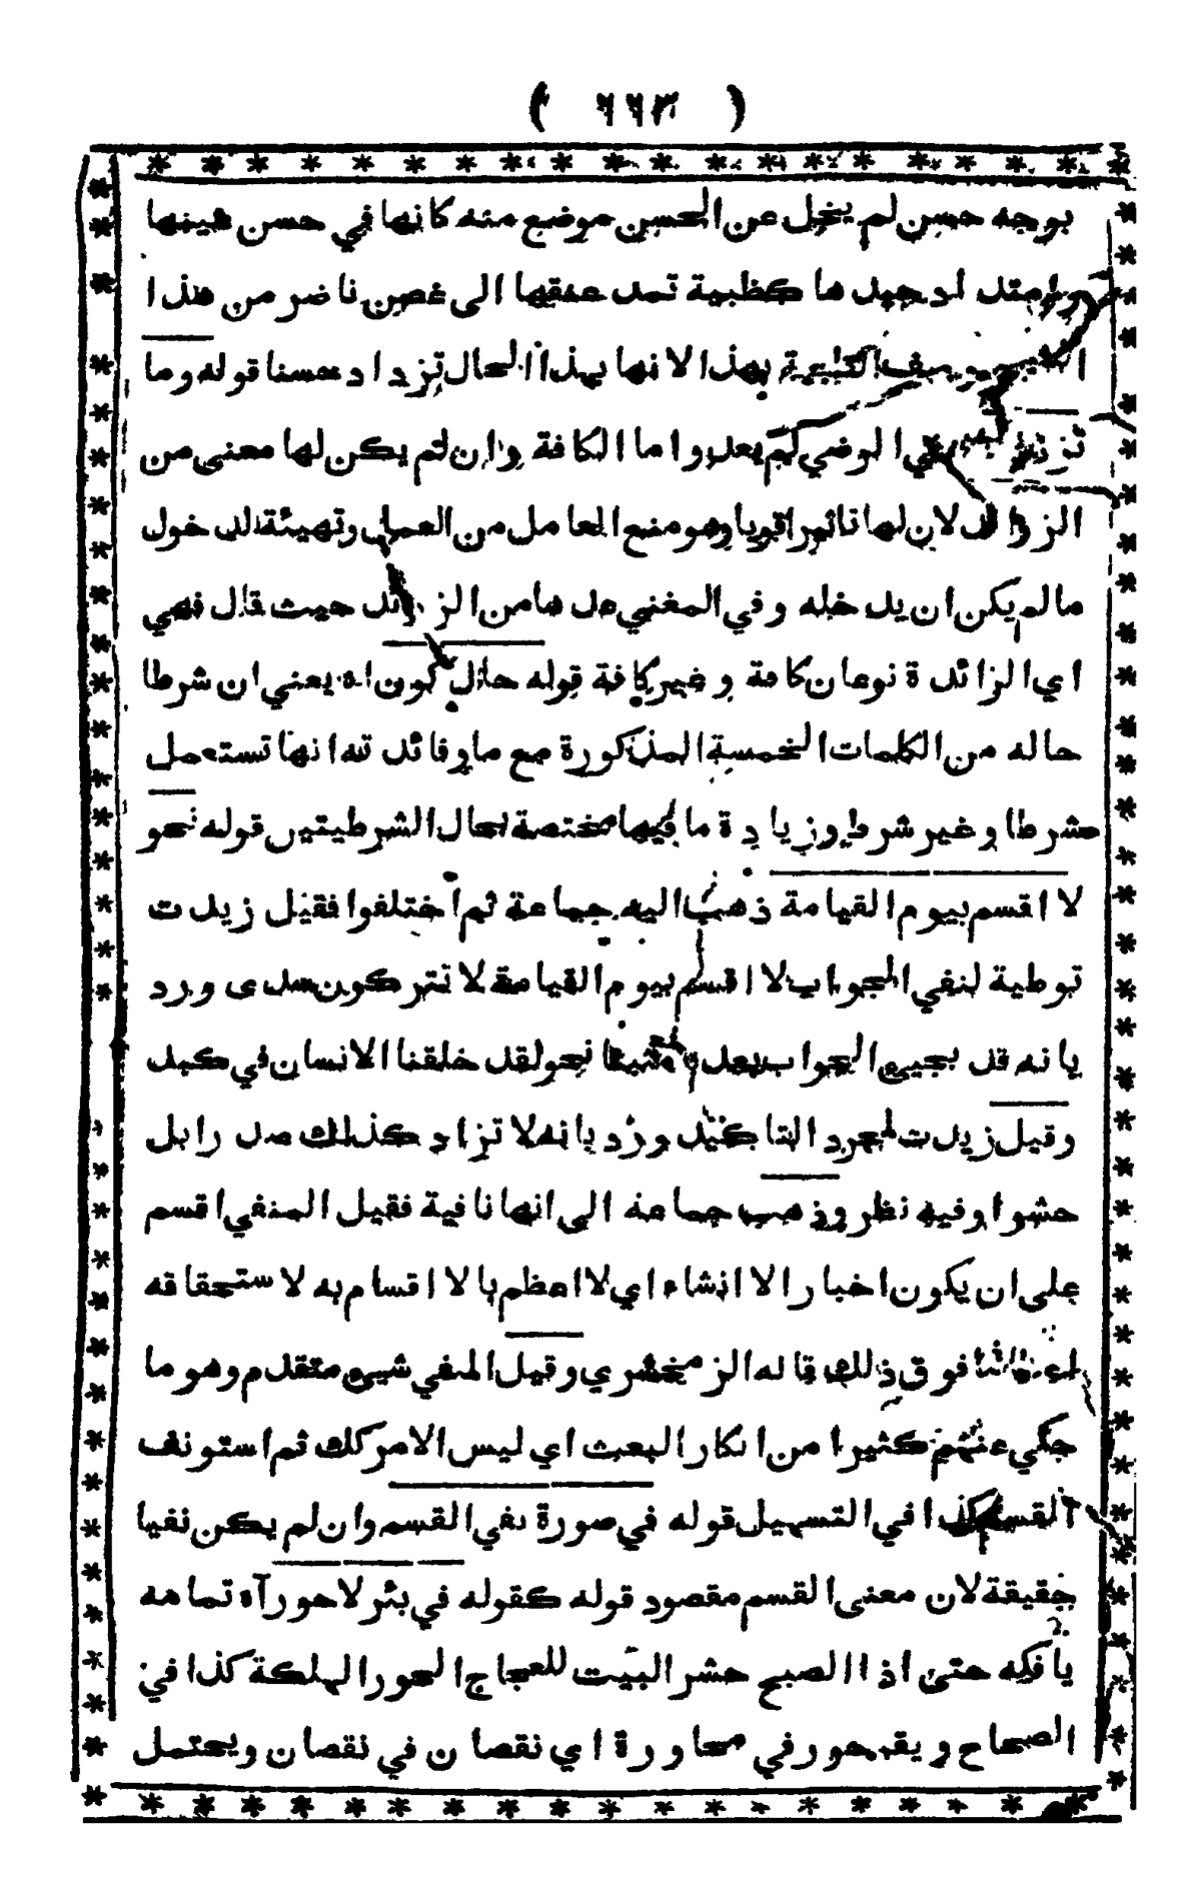 ( ٦٦٣ )
بوجه حسن لم يخل عن الحسن موضع منه كانها في حسن هينها
وامتداد جيدها كظبية تمد عنقها الى غصن ناضر من هذا
بهذا لانها بهذا الحال تزداد حسنا قوله وما
الرضي لم يعدوا ما الكافة وان لم يكن لها معنى من
الزوائد لان لها تاثيرا قويا وهو منع العامل من العمل وتهيئة لدخول
مالم يكن ان يدخله وفي المغني عدها من الزوائد حيث قال فهي
اي الزائدة نوعان كافة وغير كافة قوله حال كون اه يعني ان شرطا
حاله من الكلمات الخمسة المذكورة مع ما وفائدته انها تستعمل
شرطا وغير شرط وزيادة ما فيها مختصة بحال الشرطيتين قوله نحو
لا اقسم بيوم القيامة ذهب اليه جماعة ثم اختلفوا فقيل زيدت
توطية لنفي الجواب لا اقسم بيوم القيامة لا تتركون سدى ورد
بانه قد يجيء الجواب بعد مثبتا نحو لقد خلقنا الانسان في كبد
وقيل زيدت لمجرد التاكيد ورد بانه لا تزاد كذلك صدرا بل
حشوا وفيه نظر وذهب جماعة الى انها نافية فقيل المنفي اقسم
على ان يكون اخبارا لا انشاء اي لا اعظم بالاقسام به لاستحقاقه
فوق ذلك قاله الزمخشري وقيل المنفي شيء متقدم وهو ما
حكي عنهم كثيرا من انكار البعث اي ليس الامر كك ثم استونف
القسم كذا في التسهيل قوله في صورة نفي القسم وان لم يكن نفيا
حقيقة لان معنى القسم مقصود قوله كقوله في بئر لا حور آه تمامه
بافكه حتى اذا الصبح حشر البيت للعجاج الحور الهلكة كذا في
الصحاح ويقه حور في محاورة اي نقصان في نقصان ويحتمل